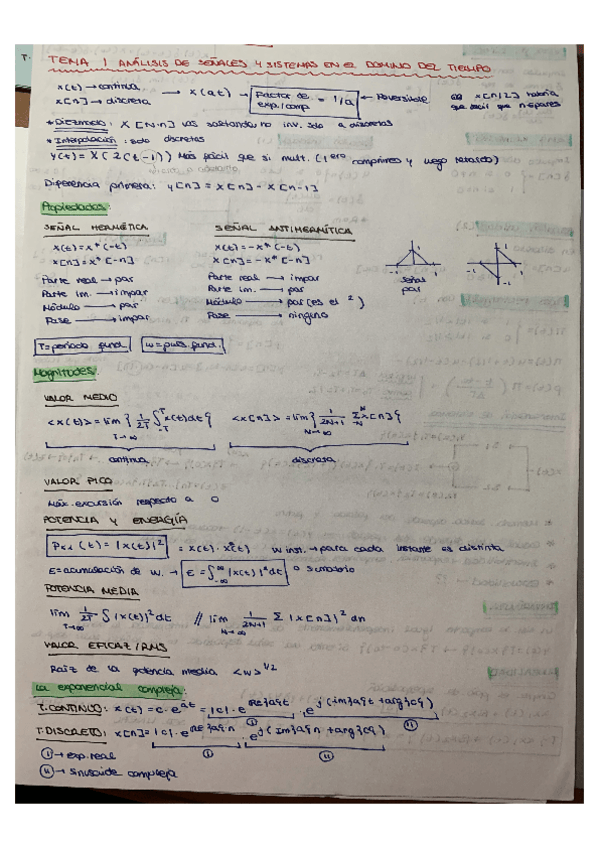 TEMA 1 ANÁLISIS DE SEÑALES Y SISTEMAS EN EL DOMINIO DEL TIEMPO
x(t) → continua → x(at) → Factor de exp./comp = 1/a ← Reversible
x[n] → discreta
x[n/2] habría que decir que n es pares
* Diezmado: x[N·n] vas saltando, no inv. solo a discretas
* Interpolación: solo discretas
y(t) = x(2(t-1)) Más fácil que si mult. (1ero comprimes y luego retardo)
Diferencia primera: y[n] = x[n] - x[n-1]
Propiedades:
SEÑAL HERMÉTICA
x(t) = x*(-t)
x[n] = x*[-n]
Parte real → par
Parte im. → impar
Módulo → par
Fase → impar
SEÑAL ANTIHERMÍTICA
x(t) = -x*(-t)
x[n] = -x*[-n]
Parte real → impar
Parte im. → par
Módulo → par (es el ²)
Fase → ninguna
-1 1
señal par
1
-1
T = periodo fund. ω = puls. fund.
Magnitudes:
VALOR MEDIO
<x(t)> = lim T→∞ { 1/2T ∫-T T x(t)dt } <x[n]> = lim N→∞ { 1/2N+1 Σ-N N x[n] }
continua discreta
VALOR PICO
Máx. excursión respecto a 0
POTENCIA Y ENERGÍA
(t) = |x(t)|² = x(t)·x*(t) W inst. → para cada instante es distinta
E = acumulación de W. → E = ∫-∞ ∞ |x(t)|² dt o sumatorio
POTENCIA MEDIA
lim T→∞ 1/2T ∫ |x(t)|² dt // lim N→∞ 1/2N+1 Σ |x[n]|² dn
VALOR EFICAZ/RMS
Raíz de la potencia media <w>^1/2
La exponencial compleja:
T. CONTINUO: x(t) = c·e^at = |c|·e^Re{a}t · e^j(Im{a}t + arg{c})
i ii
T. DISCRETO: x[n] = |c|·e^Re{a}n · e^j(Im{a}n + arg{c})
i ii
i → exp. real
ii → sinusoide compleja